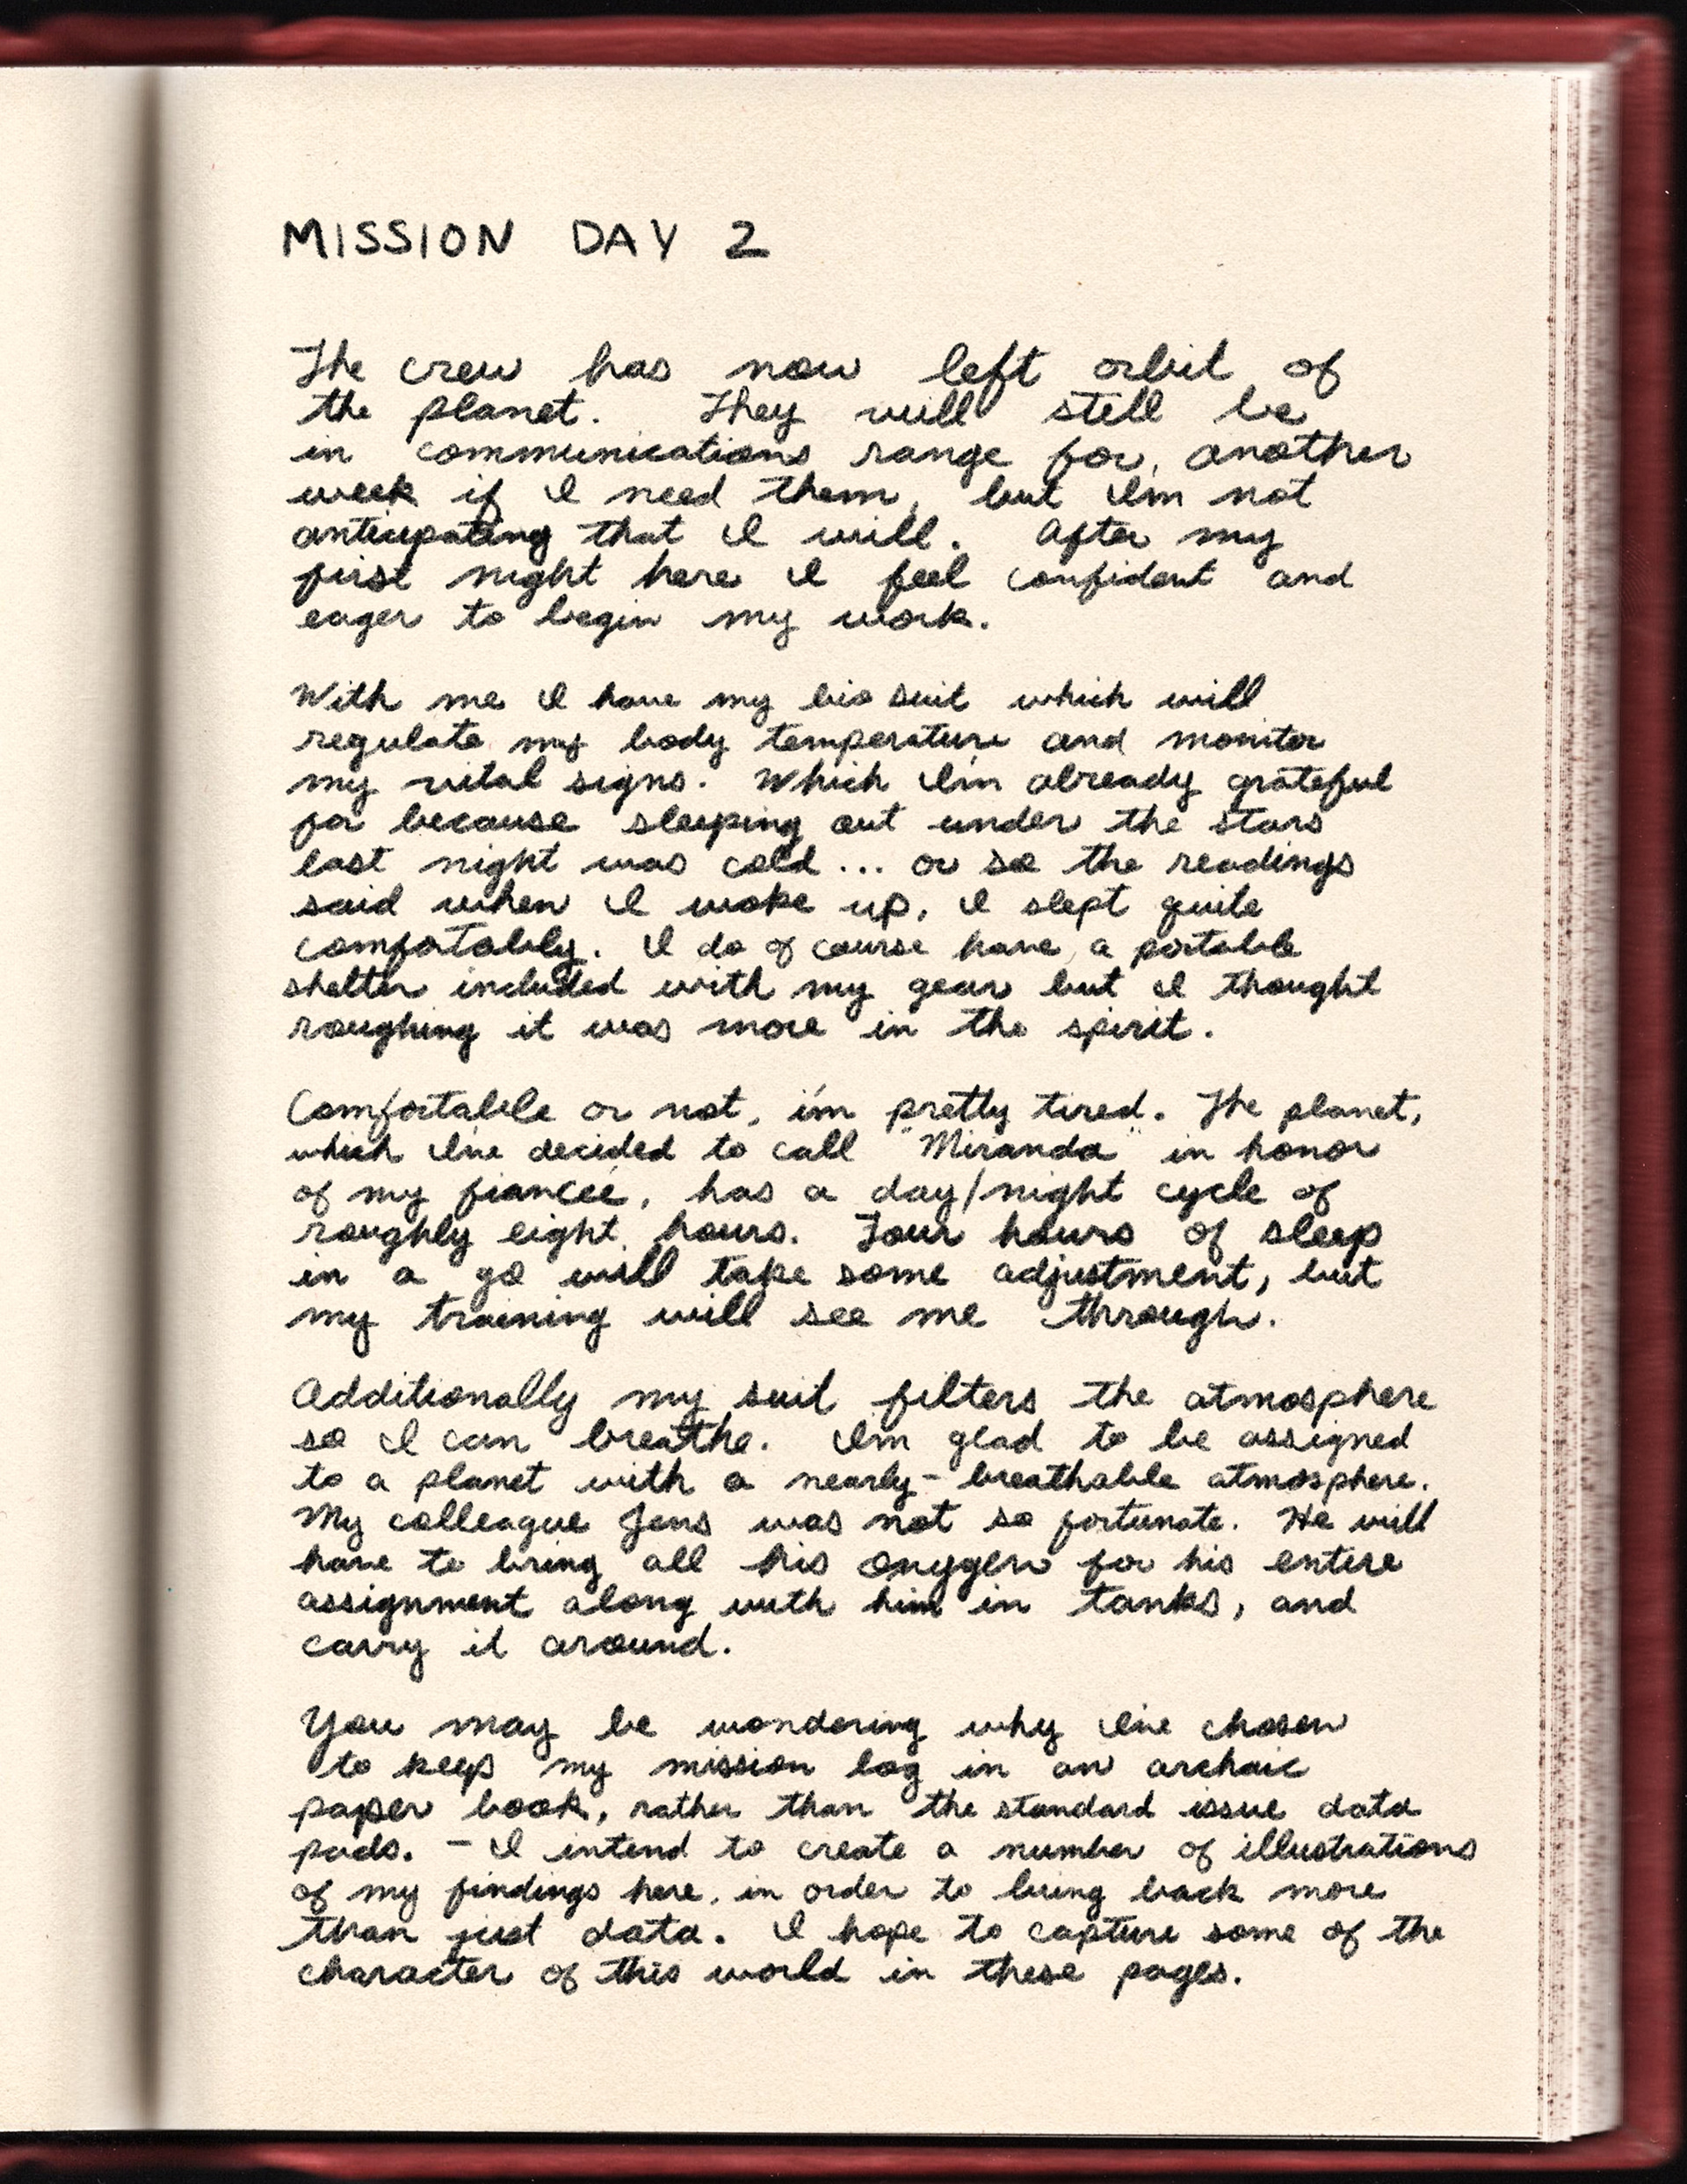 MISSION DAY 2
The crew has now left orbit of
the planet. They will still be
in communications range for, another
week if I need them, but I'm not
anticipating that I will. After my
first night here I feel confident and
eager to begin my work.
With me I have my bio suit which will
regulate my body temperature and monitor
my vital signs. Which I'm already grateful
for because sleeping out under the stars
last night was cold... or so the readings
said when I woke up, I slept quite
comfortably. I do of course have a portable
shelter included with my gear but I thought
roughing it was more in the spirit.
Comfortable or not, i'm pretty tired. The planet,
which I've decided to call "Miranda" in honor
of my fianceé, has a day/night cycle of
roughly eight hours. Four hours of sleep
in a go will take some adjustment, but
my training will see me through.
Additionally my suit filters the atmosphere
so I can breathe. I'm glad to be assigned
to a planet with a nearly-breathable atmosphere.
My colleague Jens was not so fortunate. He will
have to bring all his oxygen for his entire
assignment along with him in tanks, and
carry it around.
You may be wondering why I've chosen
to keep my mission log in an archaic
paper book, rather than the standard issue data
pads. - I intend to create a number of illustrations
of my findings here, in order to bring back more
than just data. I hope to capture some of the
character of this world in these pages.